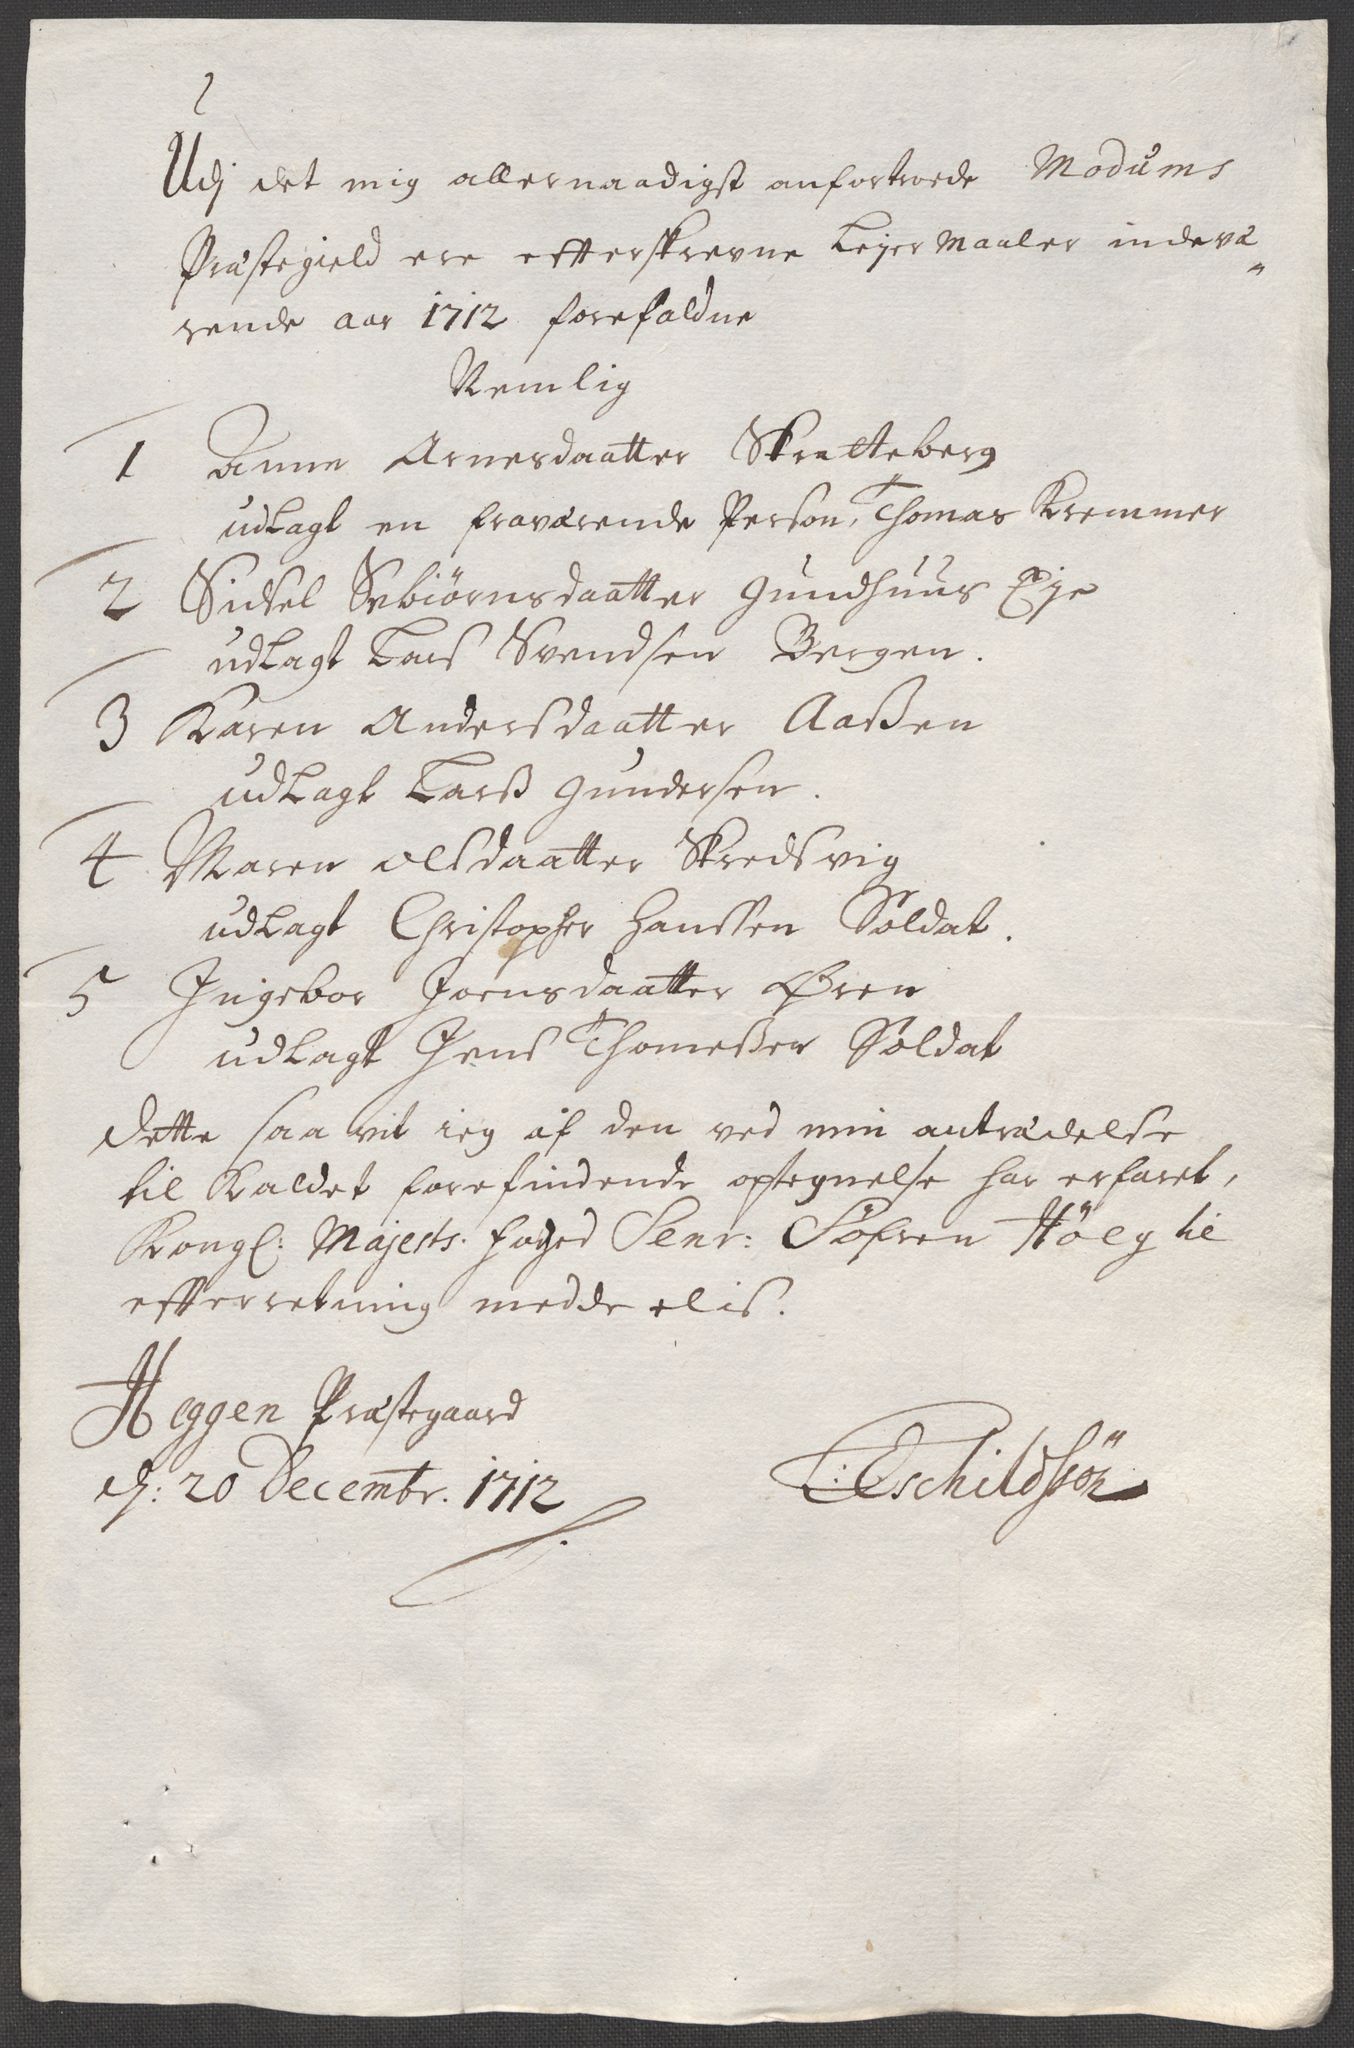 Udj det mig allernaadigst anfortroede Modums
Præstegield ere efterskrevne Leyermaaler indevæ„
rende aar 1712 forefaldne
Nemlig
1 Anne Arnesdaatter Skretteberg
udlagt en fraværende Person, Thomas Kremmer
2 Sidsel Sebiørnsdaatter Gundhuus Eje
udlagt Lars Svendsen Bergen.
3 Karen Andersdaatter Aaßen
udlagt Larß Gundersen.
4 Maren Olsdaatter Skredsvig
udlagt Christopher Hanssen Soldat.
5 Ingebor Joensdaatter Øren
udlagt Jens Thomeßen Soldat
dette saa vit ieg af den ved min antrædelse
til Kaldet forefindende optegnelse har erfaret,
Kongl: Majests. foged Senr: Söfren Höeg til
efterretning meddeelis.
Heggen Præstegaard
d: 20 Decembr. 1712
Eschildssön